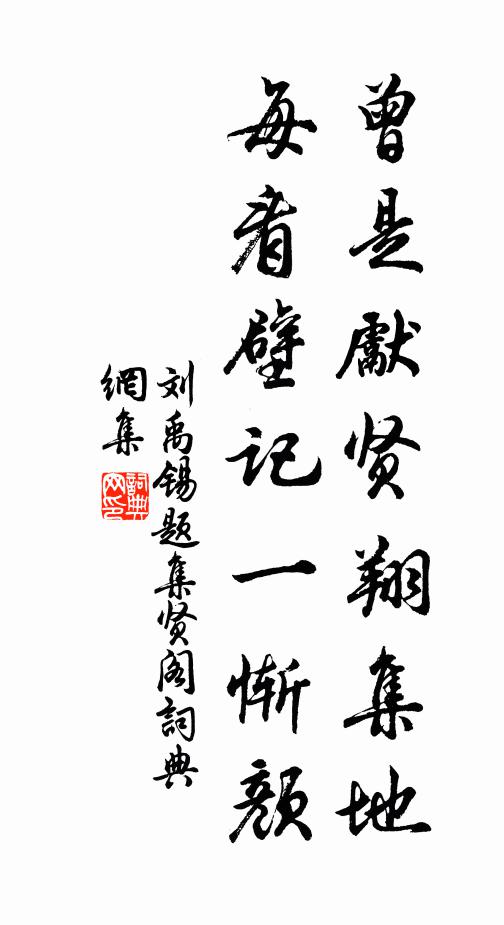 曾是獻贤翔集地
每看壁记一惭颜
刘禹锡题集贤阁詞典
網集
詞典
网印